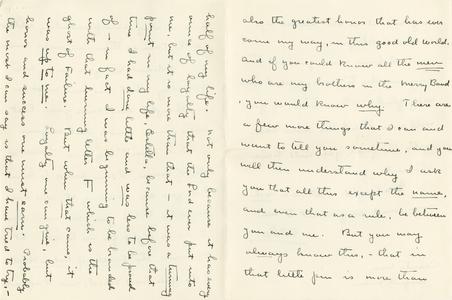 also the greatest honor that has ever
come my way, in this good old world.
And if you could know all the men
who are my brothers in the Merry Band
, you would know why. There are
a few more things that I can and
want to tell you sometime, and you
will then understand why I ask
you that all this except the name,
and even that as a rule, be between
you and me. But you may
always know this, - that in
that little pin is more than
half of my life. Not only because it has every
ounce of loyalty that the Lord ever put into
me, but it is more than that - it was a turning
point in my life, because before that
time I had done little and was less to be proud
of - in fact I was beginning to be branded
with that burning letter F which is the
ghost of Failure. But when that came, it
was up to me. Loyalty one can give, but
honor and success one must earn. Probably
the most I can say is that I have tried to try, -